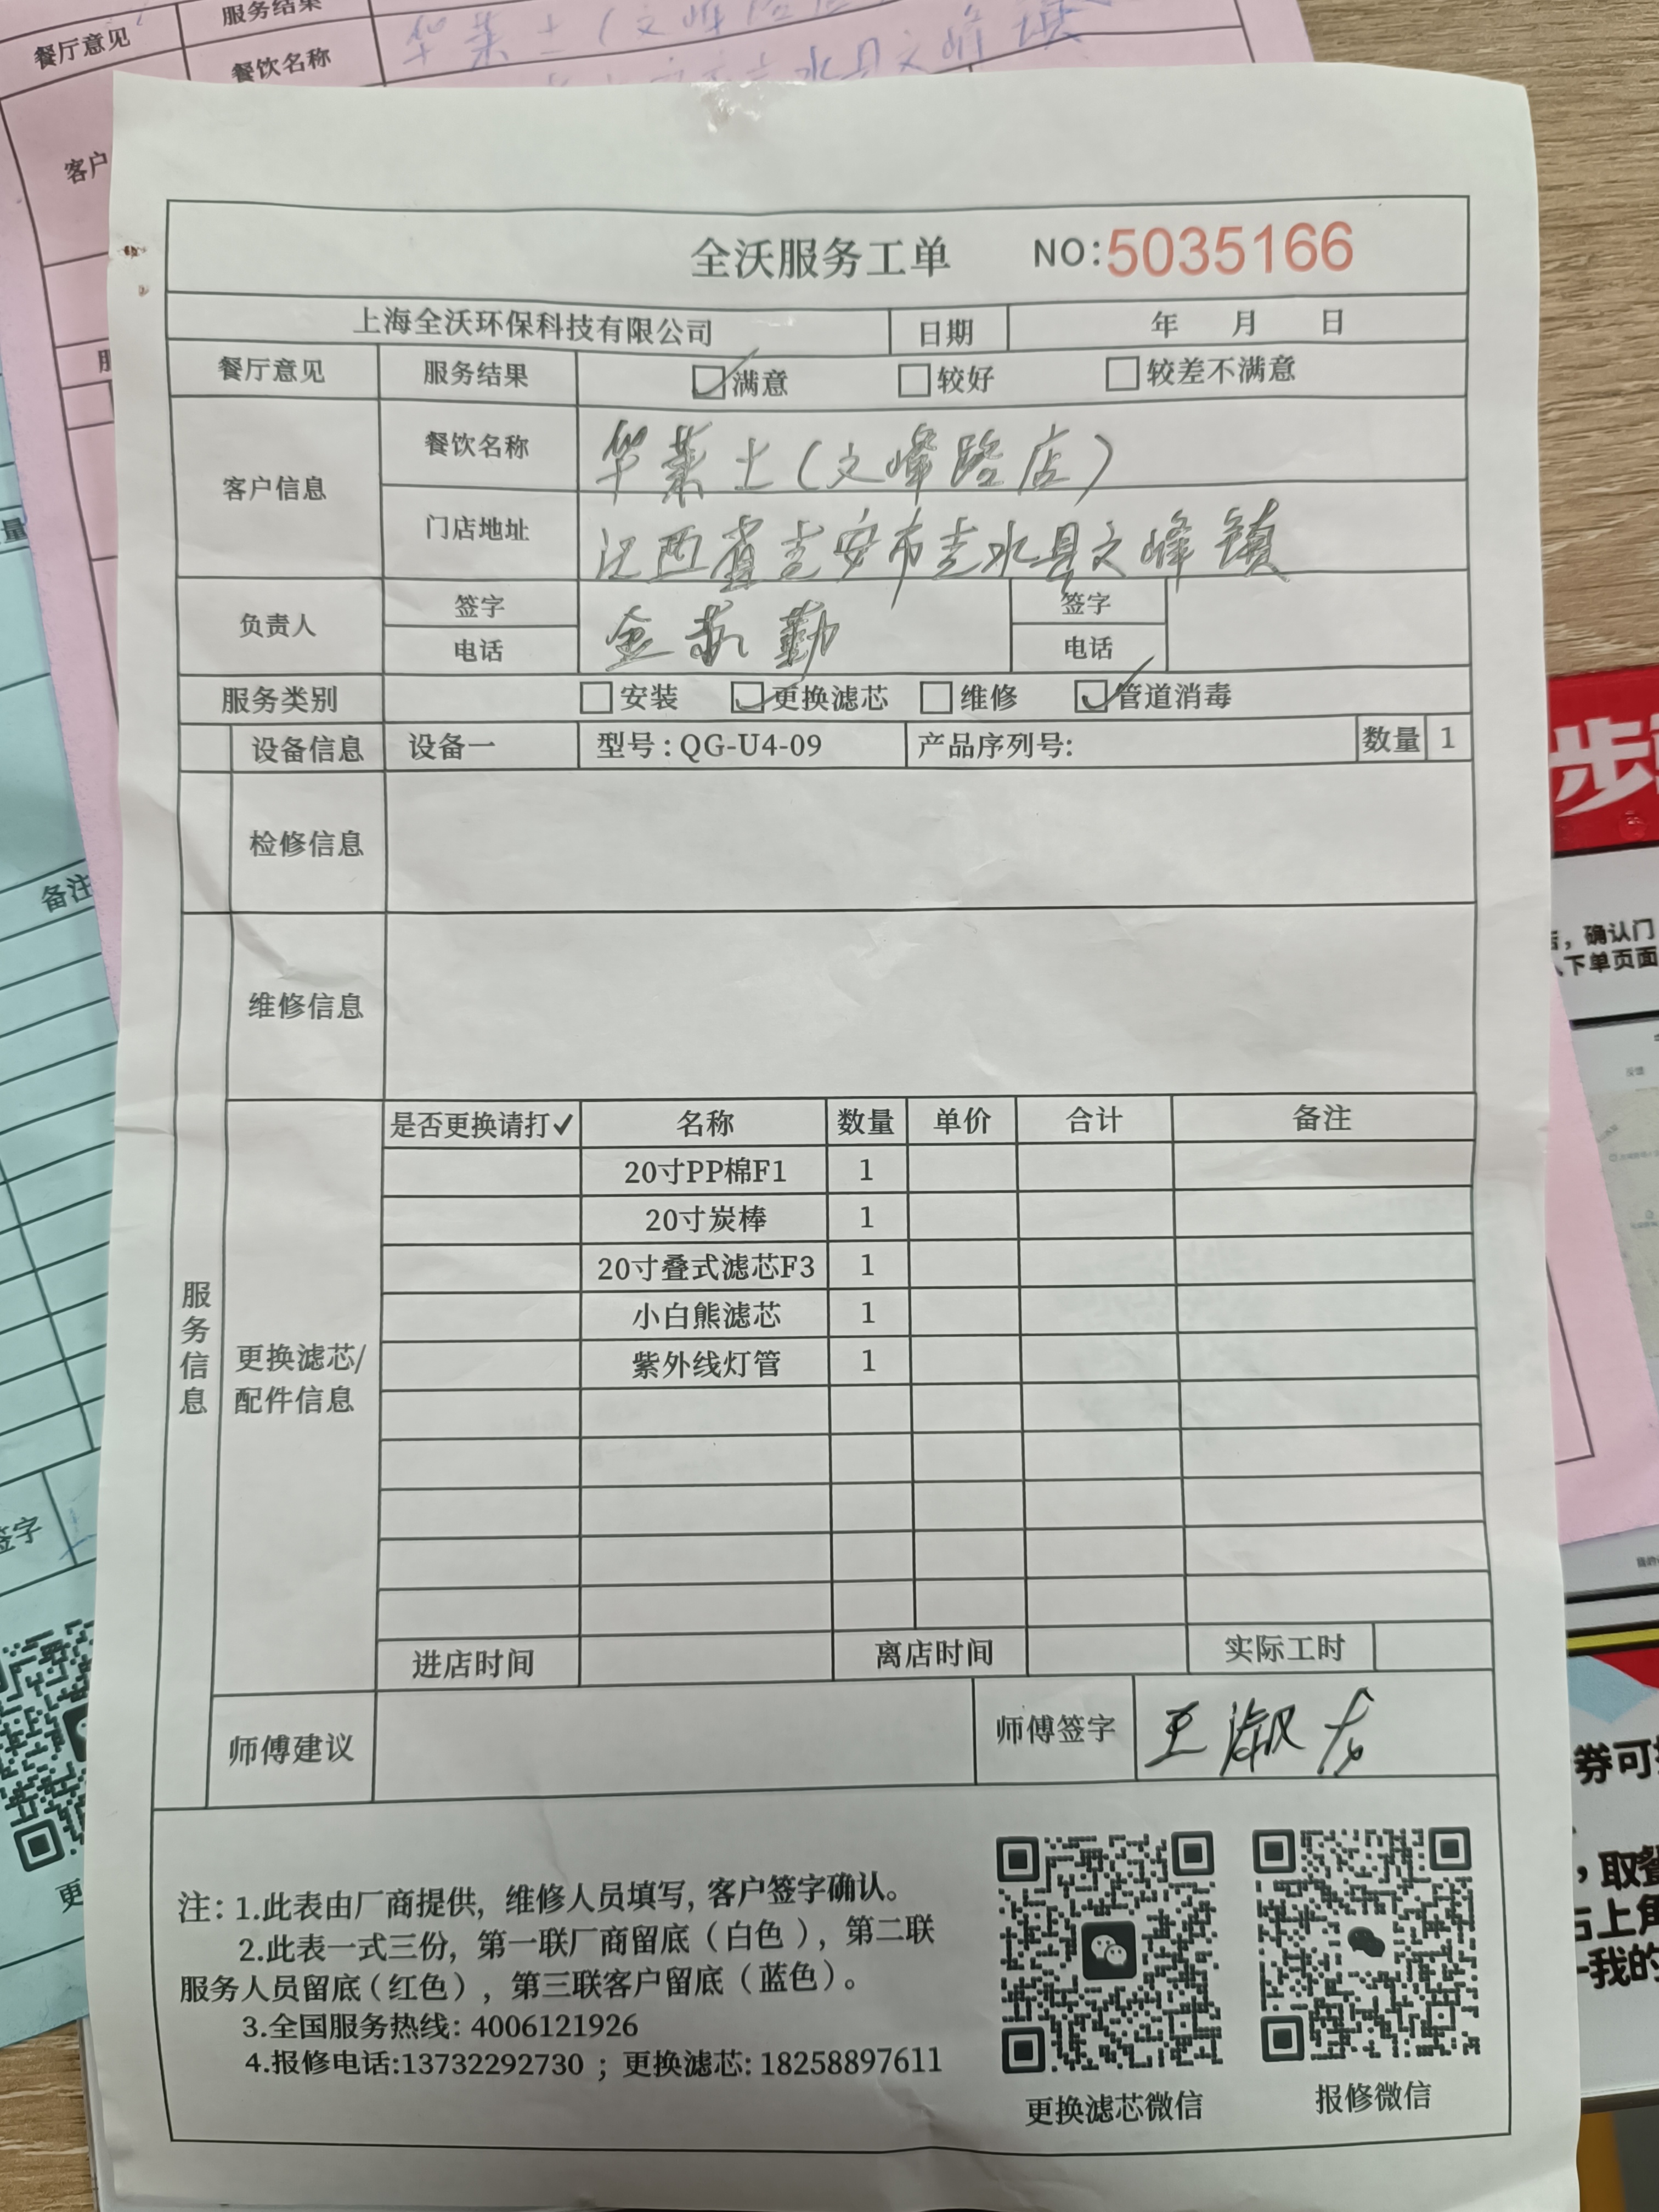 服务结果
餐厅意见
餐饮名称
华莱士(文峰路店
水县文峰镇
客户
全沃服务工单 NO:5035166
上海全沃环保科技有限公司 日期 年 月 日
餐厅意见 服务结果 ☑满意 ☐较好 ☐较差不满意
客户信息 餐饮名称 华莱士(文峰路店)
门店地址 江西省吉安市吉水县文峰镇
负责人 签字 金 勤 签字
电话 电话
服务类别 ☐安装 ☑更换滤芯 ☐维修 ☑管道消毒
设备信息 设备一 型号:QG-U4-09 产品序列号: 数量 1
检修信息
维修信息
服务信息
更换滤芯/
配件信息
是否更换请打✓ 名称 数量 单价 合计 备注
20寸PP棉F1 1
20寸炭棒 1
20寸叠式滤芯F3 1
小白熊滤芯 1
紫外线灯管 1
进店时间 离店时间 实际工时
师傅建议 师傅签字 王淑龙
注:1.此表由厂商提供,维修人员填写,客户签字确认。
2.此表一式三份,第一联厂商留底(白色),第二联
服务人员留底(红色),第三联客户留底(蓝色)。
3.全国服务热线:4006121926
4.报修电话:13732292730;更换滤芯:18258897611
更换滤芯微信 报修微信
备注
签字
更
步
,确认门
下单页面
券可
,取餐
右上角
我的